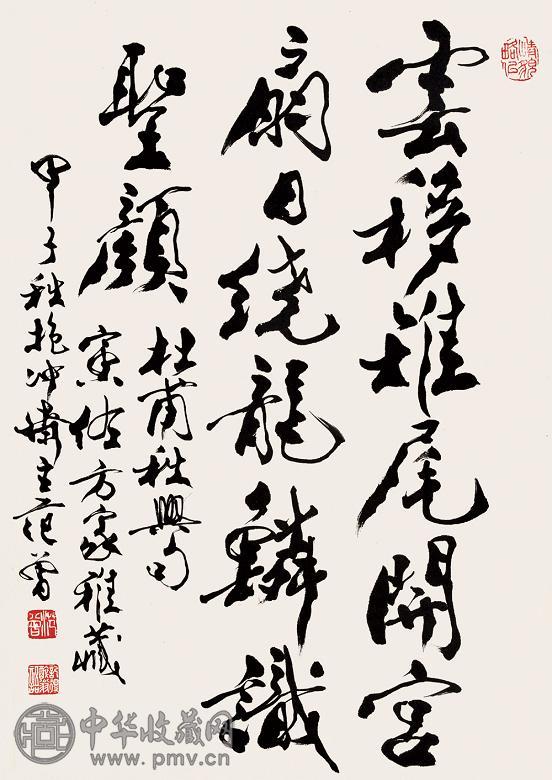 雲移雉尾開宮
扇日繞龍鱗識
聖顏
杜甫秋興句
寅佐方家雅藏
甲子秋抱冲齋主范曾
中华收藏网
www.pmv.cn